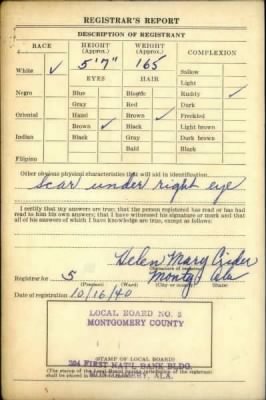 REGISTRAR'S REPORT
DESCRIPTION OF REGISTRANT
RACE HEIGHT (Approx.) WEIGHT (Approx.) COMPLEXION
White ✓ 5'7" 165 Sallow
Light
EYES HAIR Ruddy ✓
Negro Blue Blonde Dark
Gray Red Freckled
Oriental Hazel Brown ✓ Light brown
Brown ✓ Black Dark brown
Indian Black Gray Black
Bald
Filipino
Other obvious physical characteristics that will aid in identification
Scar under right eye
I certify that my answers are true; that the person registered has read or has had read to him his own answers; that I have witnessed his signature or mark and that all of his answers of which I have knowledge are true, except as follows:
Helen Mary
(Signature of registrar)
Registrar for 5 Montg Ala
(Precinct) (Ward) (City or county) (State)
Date of registration 10/16/40
LOCAL BOARD NO. 2
MONTGOMERY COUNTY
304 FIRST NAT'L BANK BLDG.
(STAMP OF LOCAL BOARD)
(The stamp of the Local Board having jurisdiction of the registrant
shall be placed in the above space.)
MONTGOMERY, ALA.